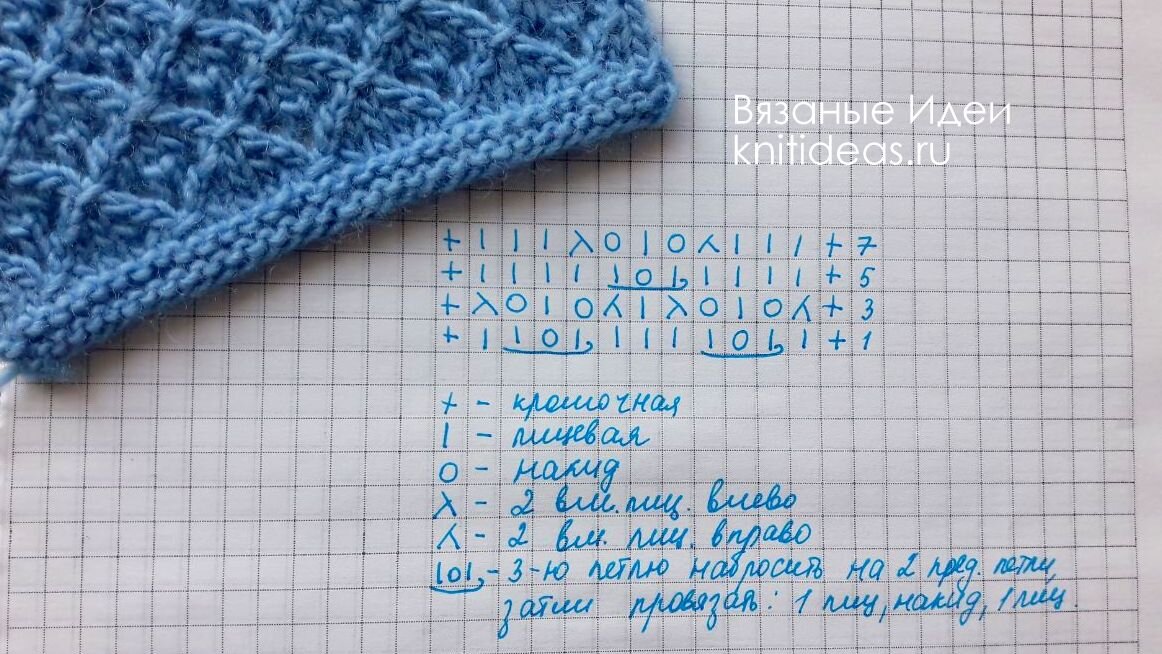 Вязаные Идеи
knitideas.ru
+ | | | λ 0 | 0 ⅄ | | | + 7
+ | | | | | 0 | | | | | + 5
+ λ 0 | 0 ⅄ | λ 0 | 0 ⅄ + 3
+ | | 0 | | | | | 0 | | + 1
+ - кромочная
| - лицевая
0 - накид
λ - 2 вм. лиц. влево
⅄ - 2 вм. лиц. вправо
|0| - 3-ю петлю набросить на 2 пред. петли,
затем провязать: 1 лиц, накид, 1 лиц.